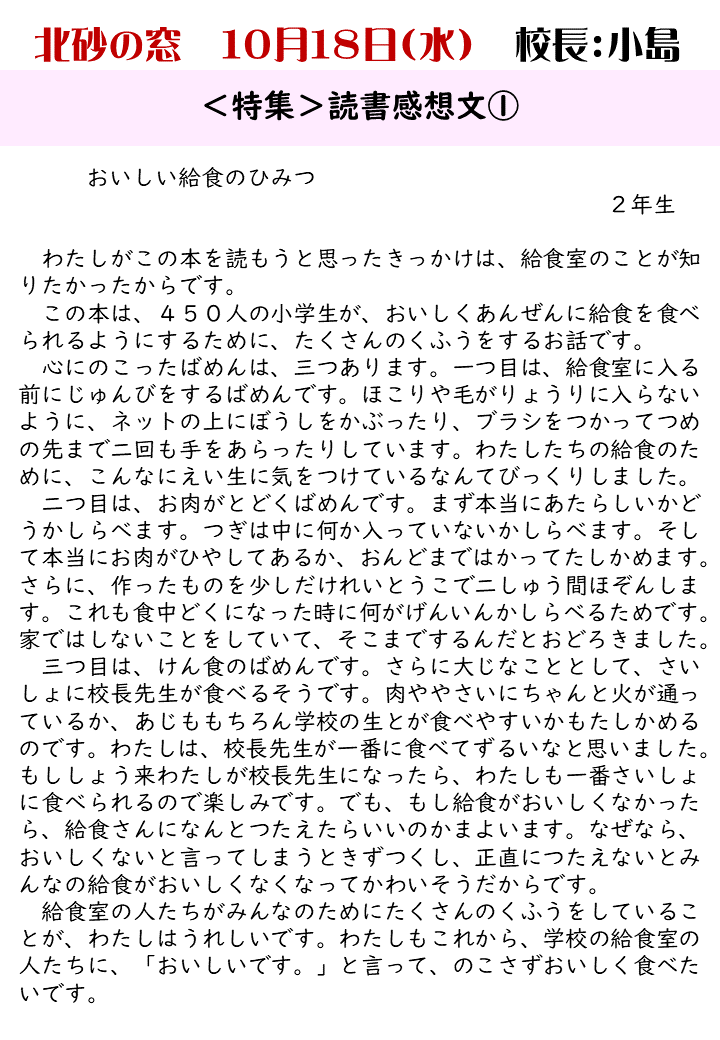 北砂の窓　10月18日(水)　校長:小島
＜特集＞読書感想文①
おいしい給食のひみつ
２年生
　わたしがこの本を読もうと思ったきっかけは、給食室のことが知
りたかったからです。
　この本は、４５０人の小学生が、おいしくあんぜんに給食を食べ
られるようにするために、たくさんのくふうをするお話です。
　心にのこったばめんは、三つあります。一つ目は、給食室に入る
前にじゅんびをするばめんです。ほこりや毛がりょうりに入らない
ように、ネットの上にぼうしをかぶったり、ブラシをつかってつめ
の先まで二回も手をあらったりしています。わたしたちの給食のた
めに、こんなにえい生に気をつけているなんてびっくりしました。
　二つ目は、お肉がとどくばめんです。まず本当にあたらしいかど
うかしらべます。つぎは中に何か入っていないかしらべます。そし
て本当にお肉がひやしてあるか、おんどまではかってたしかめます。
さらに、作ったものを少しだけれいとうこで二しゅう間ほぞんしま
す。これも食中どくになった時に何がげんいんかしらべるためです。
家ではしないことをしていて、そこまでするんだとおどろきました。
　三つ目は、けん食のばめんです。さらに大じなこととして、さい
しょに校長先生が食べるそうです。肉ややさいにちゃんと火が通っ
ているか、あじももちろん学校の生とが食べやすいかもたしかめる
のです。わたしは、校長先生が一番に食べてずるいなと思いました。
もししょう来わたしが校長先生になったら、わたしも一番さいしょ
に食べられるので楽しみです。でも、もし給食がおいしくなかった
ら、給食さんになんとつたえたらいいのかまよいます。なぜなら、
おいしくないと言ってしまうときずつくし、正直につたえないとみ
んなの給食がおいしくなくなってかわいそうだからです。
　給食室の人たちがみんなのためにたくさんのくふうをしているこ
とが、わたしはうれしいです。わたしもこれから、学校の給食室の
人たちに、「おいしいです。」と言って、のこさずおいしく食べた
いです。